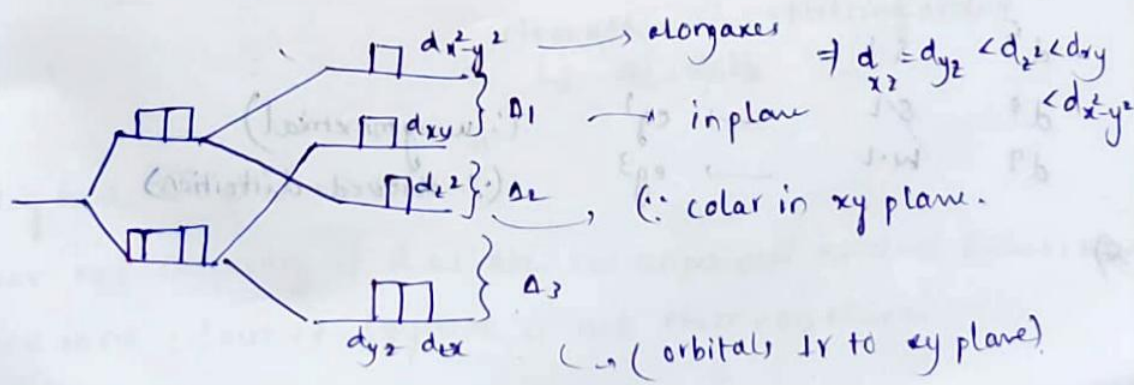 dx²-y² → alongaxes ⇒ dxz = dyz < dz² < dxy < dx²-y²
Δ1
dxy → in plane
dz² Δ2 (∵ colar in xy plane.
Δ3
dyz dzx
(orbitals ⊥r to xy plane)